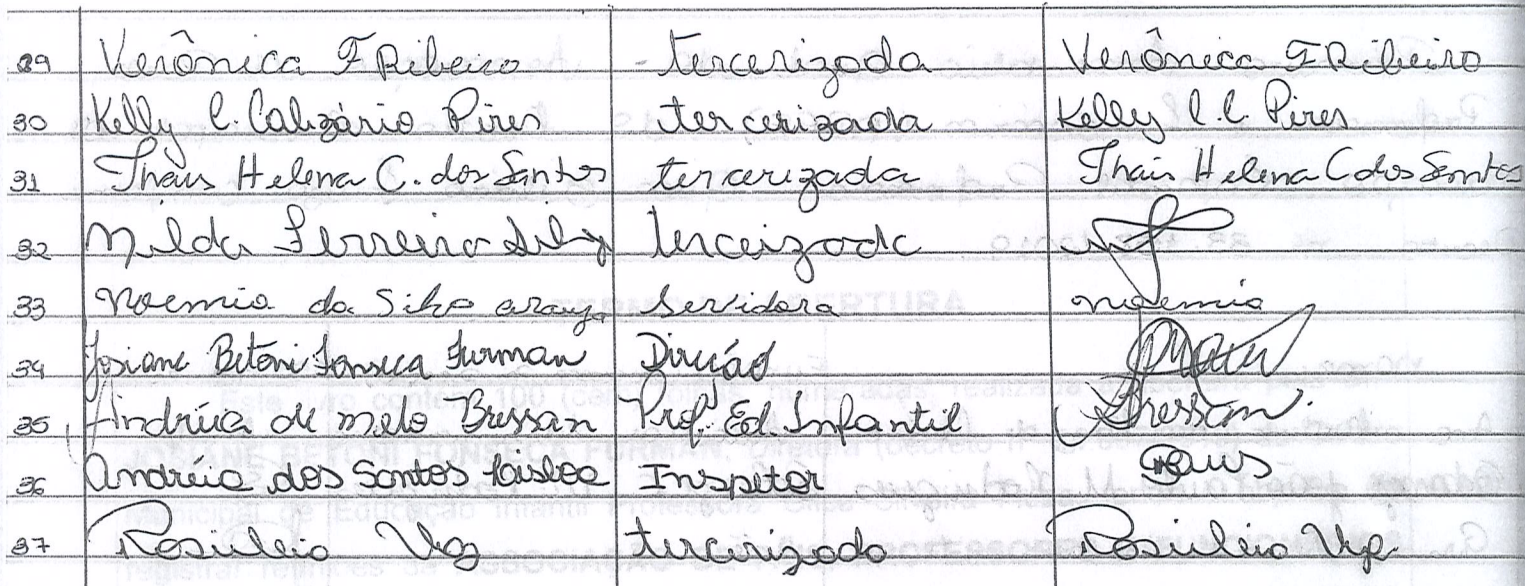 29 Verônica F Ribeiro terceirizada Verônica F Ribeiro
30 Kelly C. Calizário Pires tercerizada Kelly C.C. Pires
31 Thais Helena C. dos Santos tercerizada Thais Helena C dos Santos
32 Nilda Ferreira Silva
33 Noemia da Silva araujo Servidora noemia
34 Josiane Betoni Fonseca Furman Direção
35 Andréia de melo Bressan Profª Ed. Infantil Bressan.
36 Andréia dos Santos Inspetor
37 Rosicleia Vaz tercerizada Rosicleia Vaz